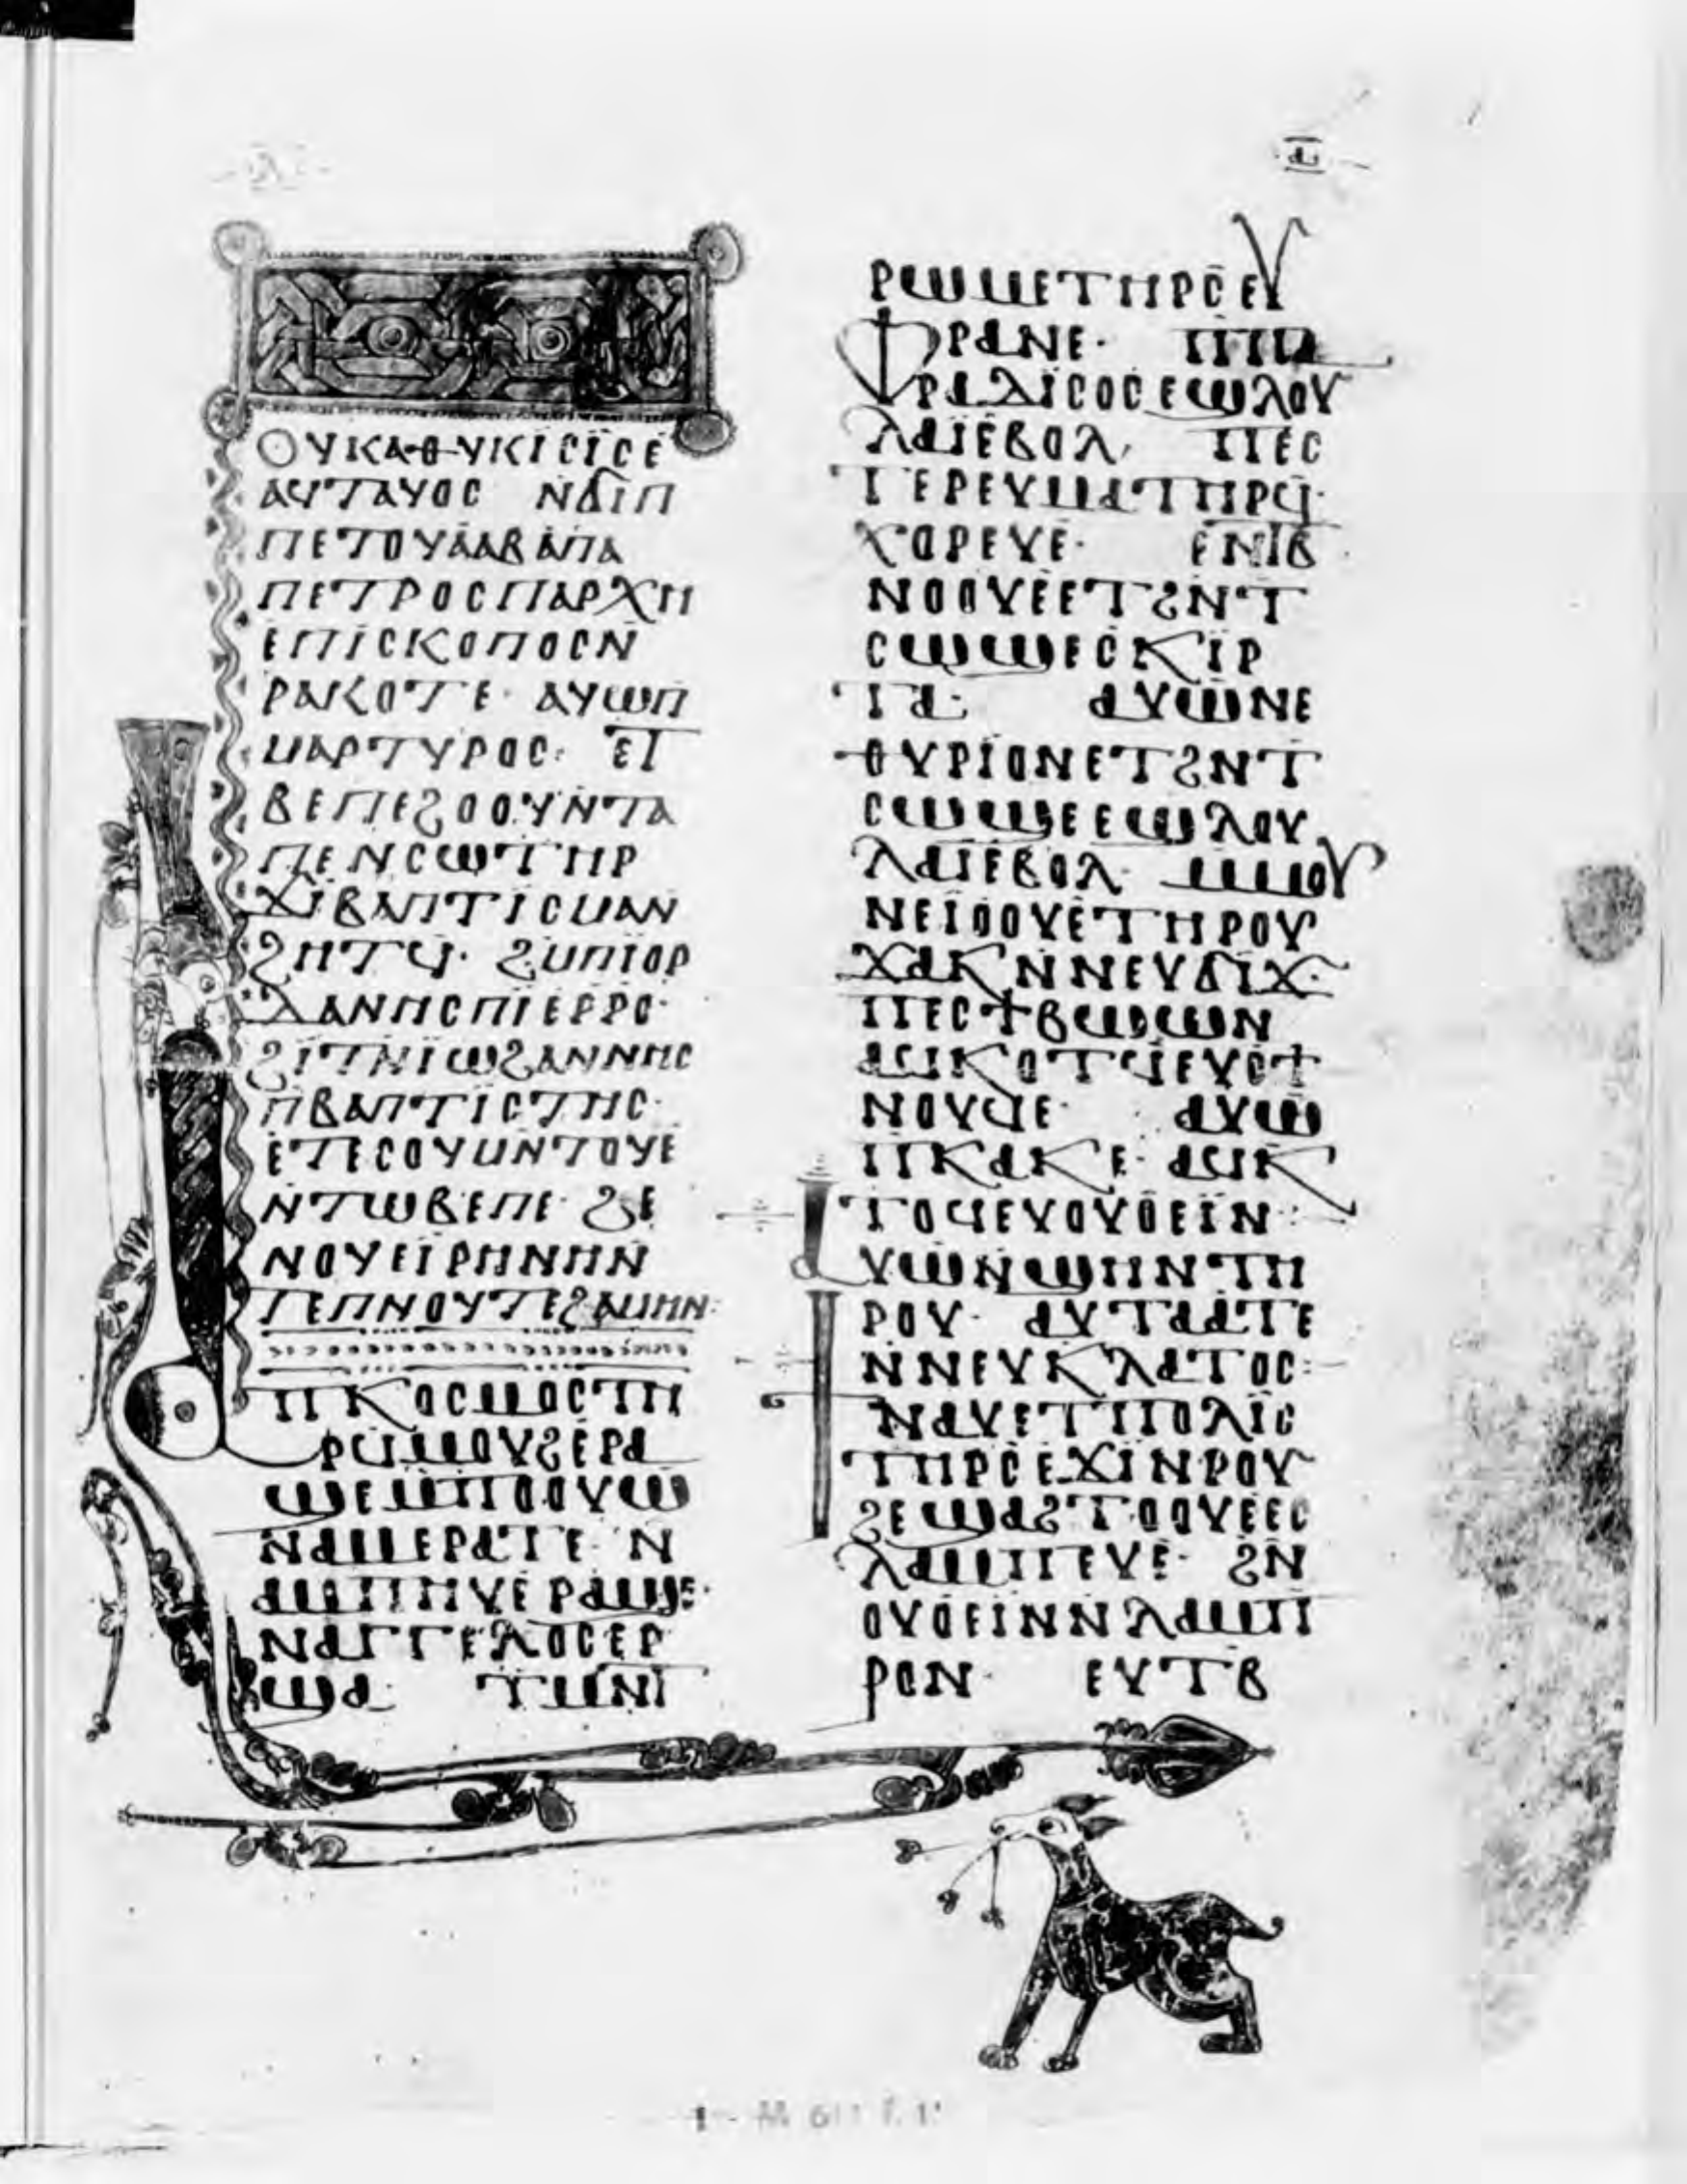 ⲁ
ⲟⲩⲕⲁⲑⲩⲕⲓⲥⲓⲥⲉ
ⲁϥⲧⲁⲩⲟⲥ ⲛϭⲓⲡ
ⲡⲉⲧⲟⲩⲁⲁⲃ ⲁⲡⲁ
ⲡⲉⲧⲣⲟⲥ ⲡⲁⲣⲭⲏ
ⲉⲡⲓⲥⲕⲟⲡⲟⲥ ⲛ̄
ⲣⲁⲕⲟⲧⲉ· ⲁⲩⲱ ⲡ
ⲙⲁⲣⲧⲩⲣⲟⲥ: ⲉⲧ
ⲃⲉ ⲡⲉϩⲟⲟⲩ ⲛ̄ⲧⲁ
ⲡⲉⲛⲥⲱⲧⲏⲣ
ϫⲓⲃⲁⲡⲧⲓⲥⲙⲁ ⲛ
ϩⲏⲧϥ· ϩⲙ ⲡⲓⲟⲣ
ⲇⲁⲛⲏⲥ ⲡⲓⲉⲣⲣⲟ·
ϩⲓⲧⲛ ⲓⲱϩⲁⲛⲛⲏⲥ
ⲡⲃⲁⲡⲧⲓⲥⲧⲏⲥ·
ⲉⲧⲉ ⲥⲟⲩⲙⲛⲧⲟⲩⲉ
ⲛ̄ⲧⲱⲃⲉ ⲡⲉ· ϩⲉ
ⲛⲟⲩⲉⲓⲣⲏⲛⲏ ⲛ̄
ⲧⲉ ⲡⲛⲟⲩⲧⲉ ϩⲁⲙⲏⲛ:
ⲡⲕⲟⲥⲙⲟⲥ ⲧⲏ
ⲣϥ ⲙⲟⲩϩ ⲉⲣⲁ
ϣⲉ ⲙⲡⲟⲟⲩ ⲱ
ⲛⲁⲙⲉⲣⲁⲧⲉ· ⲛ
ⲁⲙⲡⲏⲩⲉ ⲣⲁϣⲉ·
ⲛⲁⲅⲅⲉⲗⲟⲥ ⲉⲣ
ϣⲁ· ⲧⲙⲛⲧ
ⲣⲱⲙⲉ ⲧⲏⲣⲥ ⲉⲩ
ⲫⲣⲁⲛⲉ· ⲡⲡⲁ
ⲣⲁⲇⲓⲥⲟⲥ ⲉϣⲗⲟⲩ
ⲗⲁⲓ ⲉⲃⲟⲗ· ⲡⲉⲥ
ⲧⲉⲣⲉⲩⲙⲁ ⲧⲏⲣϥ·
ⲭⲟⲣⲉⲩⲉ· ⲉⲛⲧⲃ
ⲛⲟⲟⲩⲉ ⲉⲧϩⲛ ⲧ
ⲥⲱϣⲉ ⲥⲕⲓⲣ
ⲧⲁ· ⲁⲩⲱ ⲛⲉ
ⲑⲩⲣⲓⲟⲛ ⲉⲧϩⲛ ⲧ
ⲥⲱϣⲉ ⲉϣⲗⲟⲩ
ⲗⲁⲓ ⲉⲃⲟⲗ· ⲙⲙⲟⲩ
ⲛⲉⲓⲟⲟⲩⲉ ⲧⲏⲣⲟⲩ
ϫⲁⲕ ⲛ̄ⲛⲉⲩϭⲓϫ·
ⲡⲉⲥϯⲃⲱⲱⲛ
ⲁϥⲕⲟⲧϥ ⲉⲩⲥϯ
ⲛⲟⲩϥⲉ· ⲁⲩⲱ
ⲡⲕⲁⲕⲉ· ⲁϥⲕ
ⲧⲟϥ ⲉⲩⲟⲩⲟⲉⲓⲛ·
ⲁⲩⲱ ⲛϣⲏⲛ ⲧⲏ
ⲣⲟⲩ· ⲁⲩⲧⲁⲁⲧⲉ
ⲛ̄ⲛⲉⲩⲕⲗⲁⲧⲟⲥ:
ⲛⲁⲩ ⲉⲧⲡⲟⲗⲓⲥ
ⲧⲏⲣⲥ ⲉϫⲓⲛ ⲣⲟⲩ
ϩⲉ ϣⲁ ϩⲧⲟⲟⲩⲉ ⲉⲥ
ⲗⲁⲙⲡⲉⲩⲉ· ϩⲛ
ⲟⲩⲟⲉⲓⲛ ⲛ ⲗⲁⲙⲡ
ⲣⲟⲛ· ⲉⲩⲧⲃ